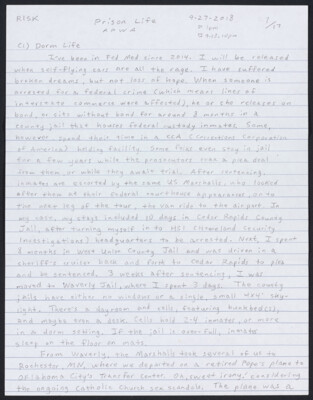 RISK
Prison Life
9-27-2018
APWA
1/17
(1) Dorm Life
I've been in Fed Med since 2014. I will be released
when self-flying cars are all the rage. I have suffered
broken dreams, but not loss of hope. When someone is
arrested for a federal crime (which means lines of
interstate commerce were affected), he or she releases on
bond, or sits without bond for around 8 months in a
county jail that houses federal custody inmates. Some,
however spend their time in a CCA (Corrections Corporation
of America) holding facility. Some folks even stay in jail
for a few years while the prosecutors a plea deal
from them or while they await trial. After sentencing,
inmates are escorted by the same US Marshalls who looked
after them at their federal courthouse appearances, on to
the next leg of the tour, the van ride to the airport. In
my case, my stays included 10 days in Cedar Rapids County
Jail, after turning myself in to HSI (Homeland Security
Investigations) headquarters to be arrested. Next, I spent
8 months in West Union County Jail and was driven in a
sheriff's cruiser back and forth to Cedar Rapids to plea
and be sentenced. 3 weeks after sentencing, I was
moved to Waverly Jail, where I spent 3 days. The county
jails have either no windows or a single, small 4x4 sky-
light. There's a dayroom and cells featuring bunkbed(s),
and maybe even a desk. Cells hold 2-4 inmates, or more
in a dorm setting. If the jail is overfull, inmates
sleep on the floor on mats.
From Waverly, the Marshalls took several of us to
Rochester, MN, where we departed on a retired Pope's plane to
Oklahoma City's Transfer Center. Oh, sweet irony, considering
the ongoing Catholic Church sex scandals. The plane was a